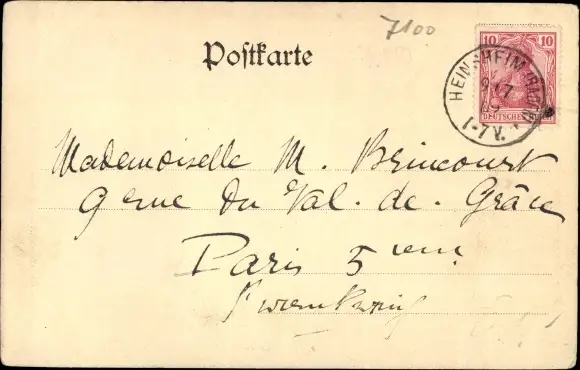 7100
Postkarte
10 10
DEUTSCHES REICH
HEINSHEIM (BADEN)
9 17
09
1-7V.
Mademoiselle M. Brincourt
9 rue du Val-de-Grâce
Paris 5 ieme